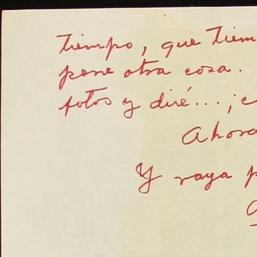 tiempo, que tiem
pone otra cosa.
fotos y diré...; c
Ahora
Y vaya p